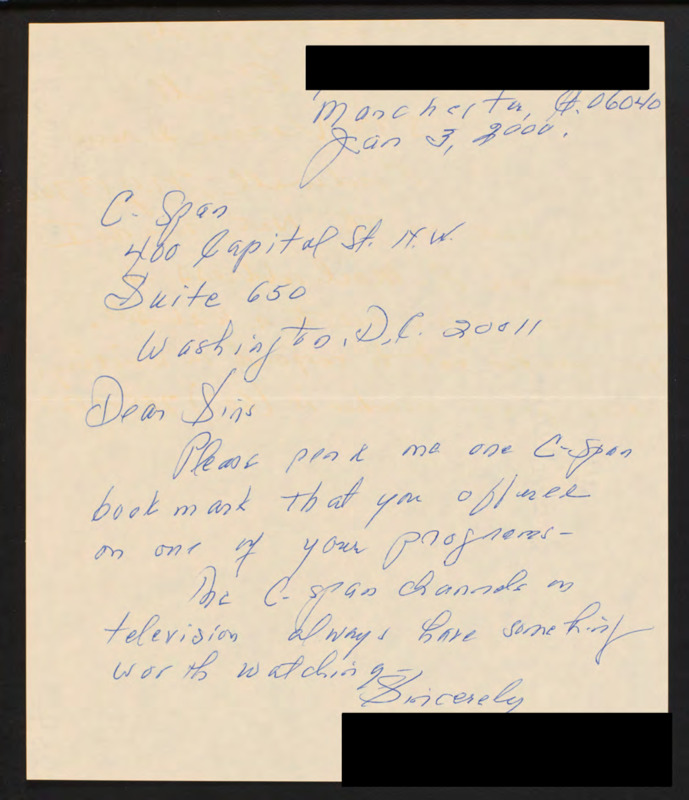 Manchester, Ct. 06040
Jan 3, 2000.
C-Span
400 Capital St. N.W.
Suite 650
Washington, D.C. 20011
Dear Sirs
Please send me one C-Span
book mark that you offered
on one of your programs-
The C-span channels on
television always have something
worth watching-
Sincerely